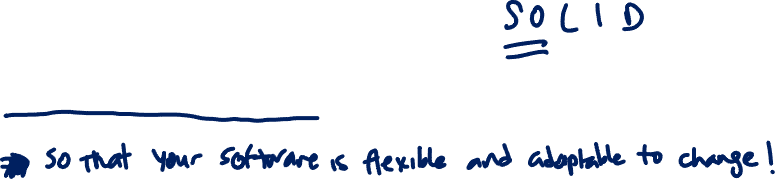 SOLID
⇒ So that your software is flexible and adoptable to change!